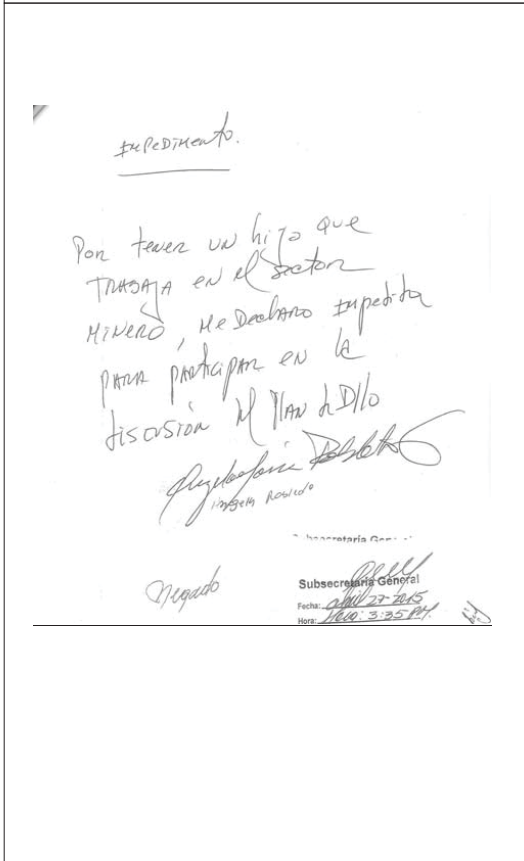 Impedimento.
Por tener un hijo que
trabaja en el sector
minero, me declaro impedida
para participar en la
discusión del Plan de D/llo
Angela María Robledo
Negado
Subsecretaría General
Subsecretaría General
Fecha: abril 27-2015
Hora: Hora: 3:35 PM.